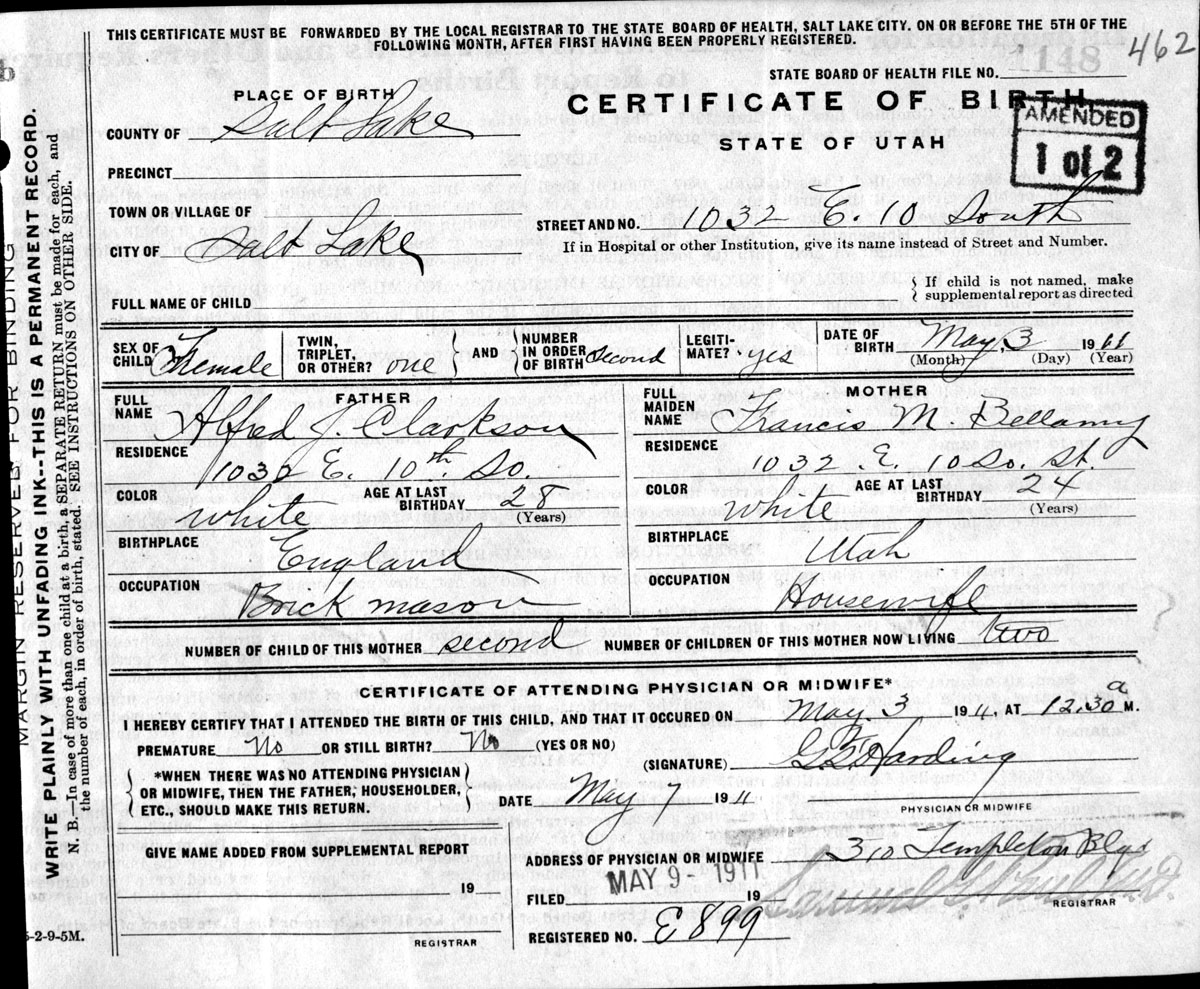 THIS CERTIFICATE MUST BE FORWARDED BY THE LOCAL REGISTRAR TO THE STATE BOARD OF HEALTH, SALT LAKE CITY, ON OR BEFORE THE 5TH OF THE
FOLLOWING MONTH, AFTER FIRST HAVING BEEN PROPERLY REGISTERED.
462
STATE BOARD OF HEALTH FILE NO.
PLACE OF BIRTH
CERTIFICATE OF BIRTH
AMENDED
1 of 2
COUNTY OF Salt Lake
STATE OF UTAH
PRECINCT
TOWN OR VILLAGE OF
STREET AND NO. 1032 E. 10 South
CITY OF Salt Lake
If in Hospital or other Institution, give its name instead of Street and Number.
FULL NAME OF CHILD
If child is not named, make
supplemental report as directed
SEX OF CHILD Female
TWIN, TRIPLET, OR OTHER? one
AND
NUMBER IN ORDER OF BIRTH second
LEGITIMATE? yes
DATE OF BIRTH May 3 1911
(Month) (Day) (Year)
FATHER
FULL NAME Alfred J. Clarkson
RESIDENCE 1032 E. 10th So.
COLOR White
AGE AT LAST BIRTHDAY 28 (Years)
BIRTHPLACE England
OCCUPATION Brick mason
MOTHER
FULL MAIDEN NAME Francis M. Bellamy
RESIDENCE 1032 E. 10 So. St.
COLOR White
AGE AT LAST BIRTHDAY 24 (Years)
BIRTHPLACE Utah
OCCUPATION Housewife
NUMBER OF CHILD OF THIS MOTHER second NUMBER OF CHILDREN OF THIS MOTHER NOW LIVING two
CERTIFICATE OF ATTENDING PHYSICIAN OR MIDWIFE*
I HEREBY CERTIFY THAT I ATTENDED THE BIRTH OF THIS CHILD, AND THAT IT OCCURED ON May 3 1911, AT 12.30 a M.
PREMATURE No OR STILL BIRTH? No (YES OR NO)
(SIGNATURE) Harding
*WHEN THERE WAS NO ATTENDING PHYSICIAN
OR MIDWIFE, THEN THE FATHER, HOUSEHOLDER,
ETC., SHOULD MAKE THIS RETURN.
DATE May 7 1911
PHYSICIAN OR MIDWIFE
GIVE NAME ADDED FROM SUPPLEMENTAL REPORT
19
REGISTRAR
ADDRESS OF PHYSICIAN OR MIDWIFE 310 Templeton Bldg
FILED MAY 9 - 1911 19
REGISTRAR
REGISTERED NO. E 899
MARGIN RESERVED FOR BINDING
WRITE PLAINLY WITH UNFADING INK--THIS IS A PERMANENT RECORD.
N. B.—In case of more than one child at a birth, a SEPARATE RETURN must be made for each, and
the number of each, in order of birth, stated. SEE INSTRUCTIONS ON OTHER SIDE.
5-2-9-5M.